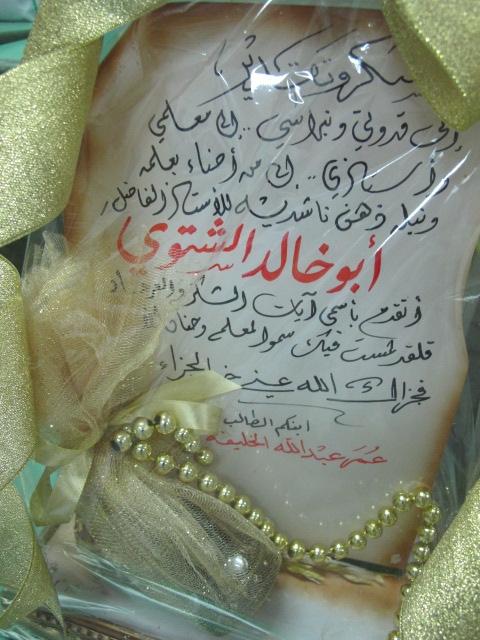 شكر وتقدير
إلى قدوتي ونبراسي .. إلى معلمي
وأستاذي .. إلى من أضاء بعلمه
ونبله ذهني ناشديته للأستاذ الفاضل
أبو خالد الشتوي
أتقدم بأسمى آيات الشكر والعرفان
فلقد لمست فيك سمو المعلم وحنان
فجزاك الله عني خير الجزاء
ابنكم الطالب
عمر عبدالله الخليفة